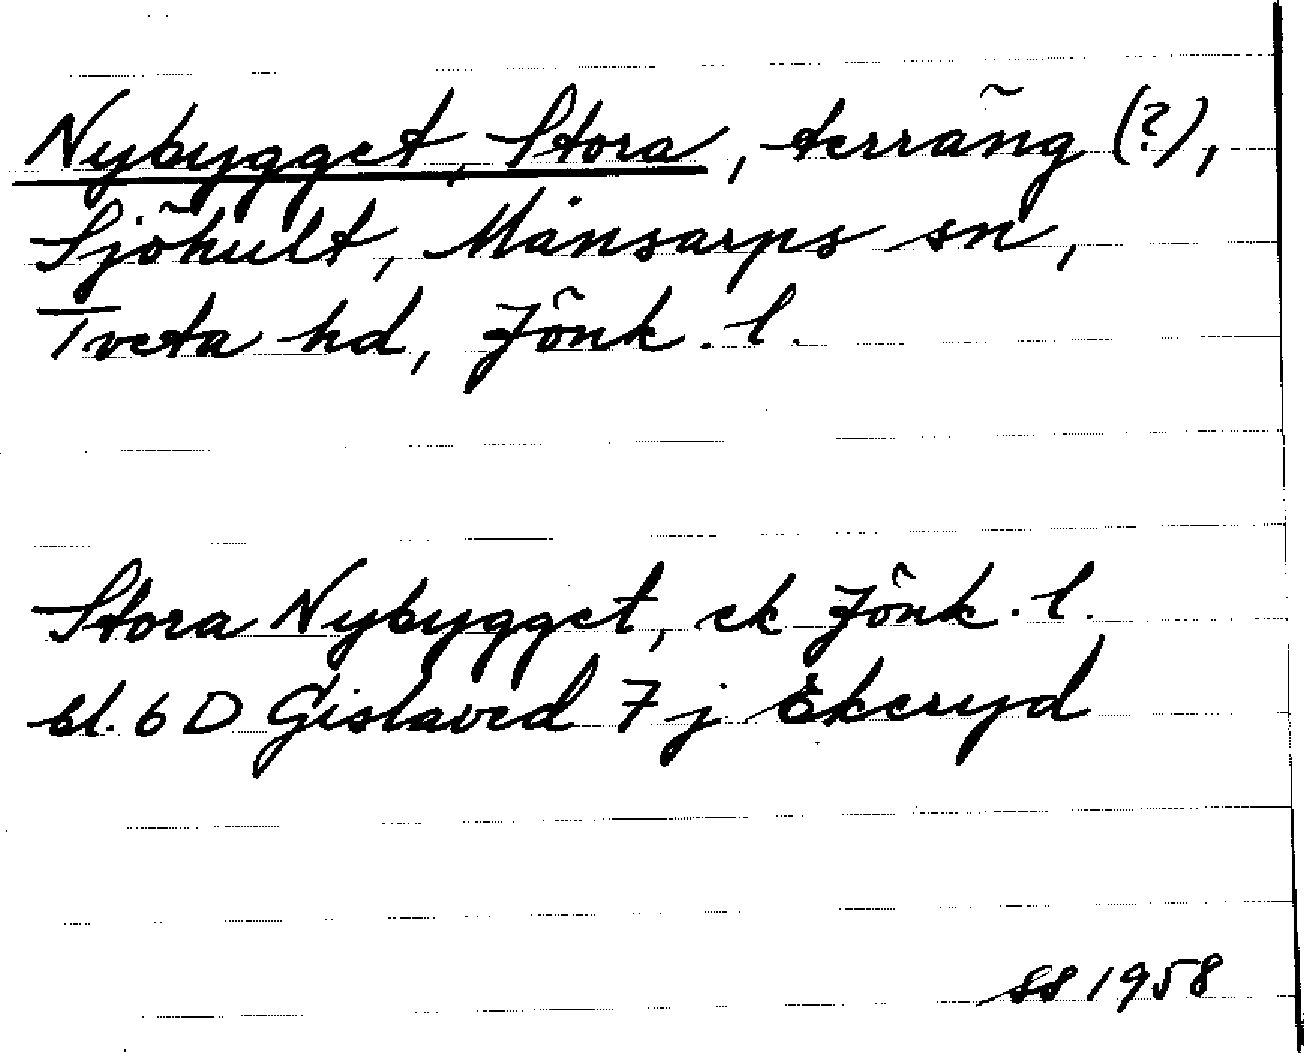 Nybygget, Stora, terräng (?),
Sjöhult, Månsarps sn,
Tveta hd, Jönk. l.
Stora Nybygget, ek Jönk. l.
bl. 6 D Gislaved 7 j Ekeryd
SS 1958